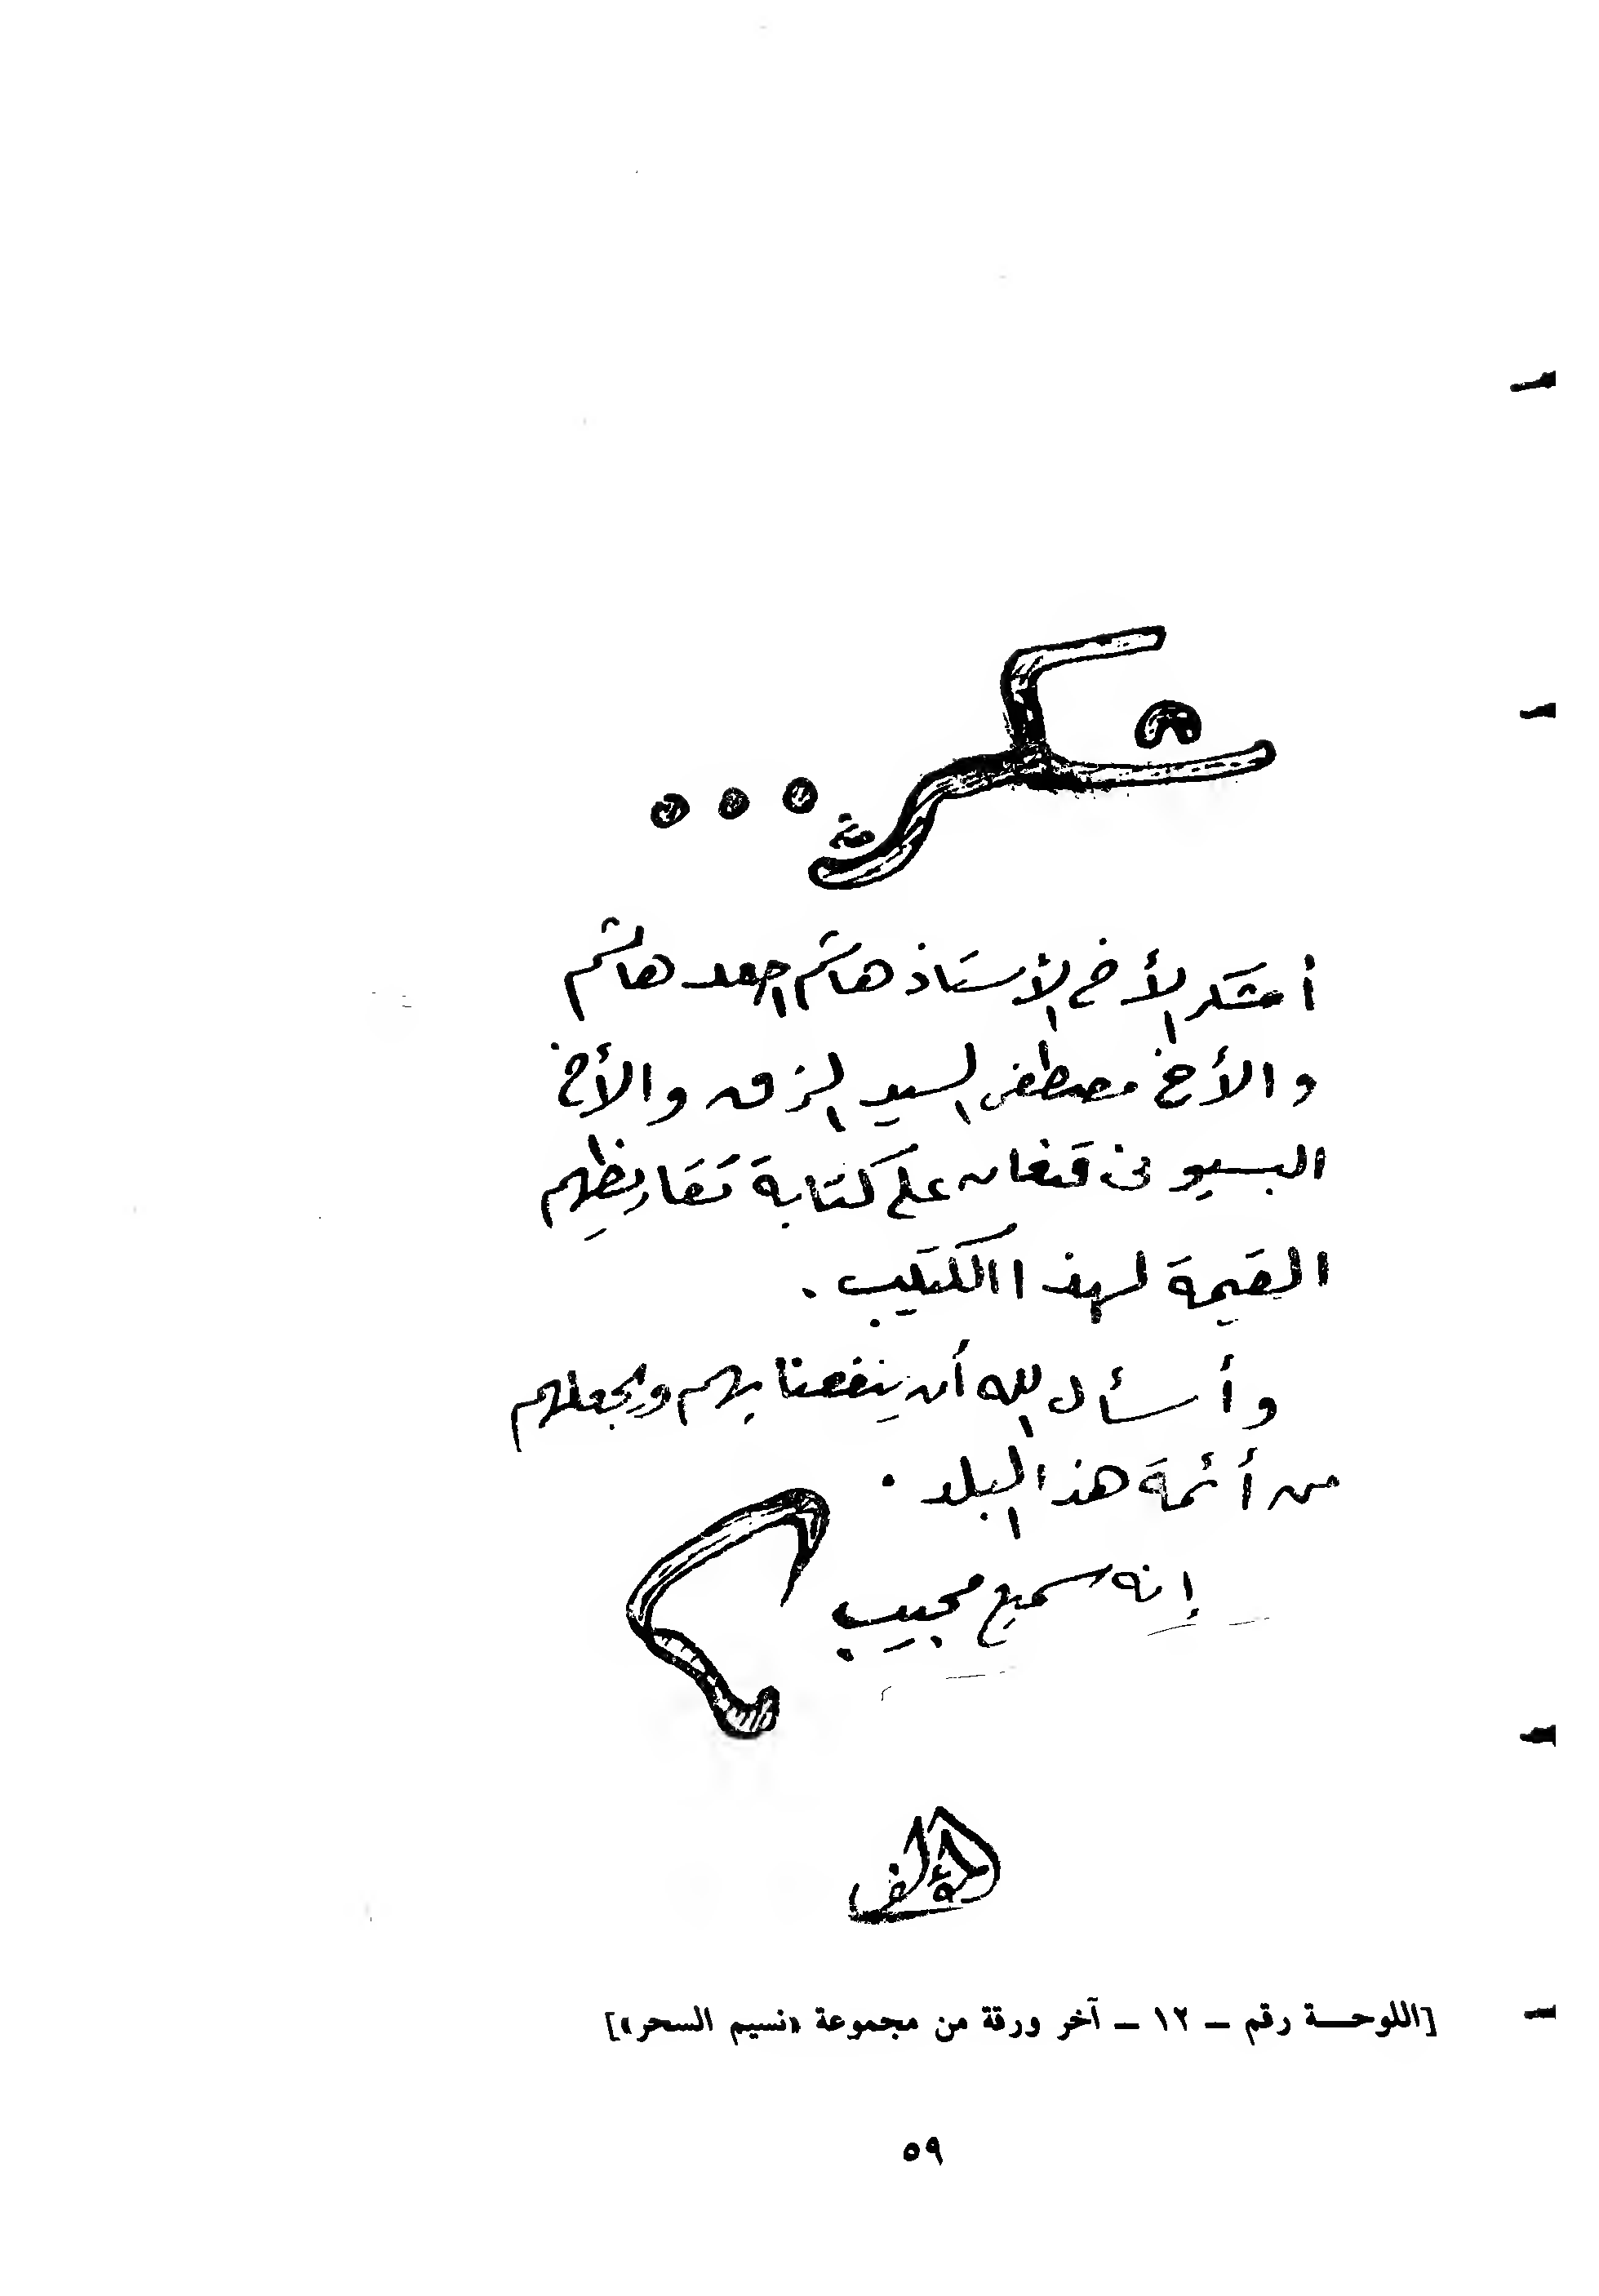 شكر ...
أشكر الأخ الأستاذ هاشم احمد هاشم
والأخ مصطفى السيد الزق والأخ
البسيونى قنفان على كتابة تقاريظهم
القيمة لهذا الكتيب .
وأسأل الله أن ينفعنا بهم ويجعلهم
من أئمة هذا البلد .
إنه سميع مجيب
المؤلف
[اللوحة رقم – ١٢ – آخر ورقة من مجموعة «نسيم السحر»]
٥٩